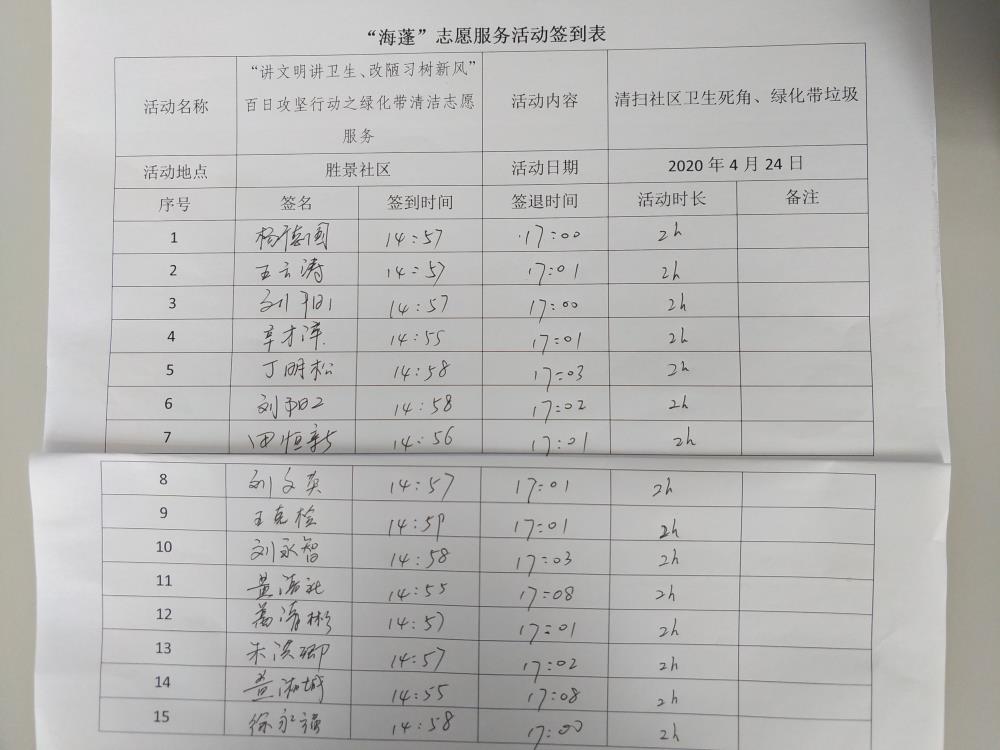 “海蓬”志愿服务活动签到表
活动名称 “讲文明讲卫生、改陋习树新风”百日攻坚行动之绿化带清洁志愿服务 活动内容 清扫社区卫生死角、绿化带垃圾
活动地点 胜景社区 活动日期 2020年4月24日
序号 签名 签到时间 签退时间 活动时长 备注
1 杨德国 14:57 17:00 2h
2 王云涛 14:57 17:01 2h
3 刘 14:57 17:00 2h
4 辛才 14:55 17:01 2h
5 丁明松 14:58 17:03 2h
6 刘 14:58 17:02 2h
7 田恒新 14:56 17:01 2h
8 刘文英 14:57 17:01 2h
9 王克检 14:59 17:01 2h
10 刘永智 14:58 17:03 2h
11 14:55 17:08 2h
12 葛清彬 14:57 17:01 2h
13 朱洪卿 14:57 17:02 2h
14 14:55 17:08 2h
15 徐永强 14:58 17:00 2h